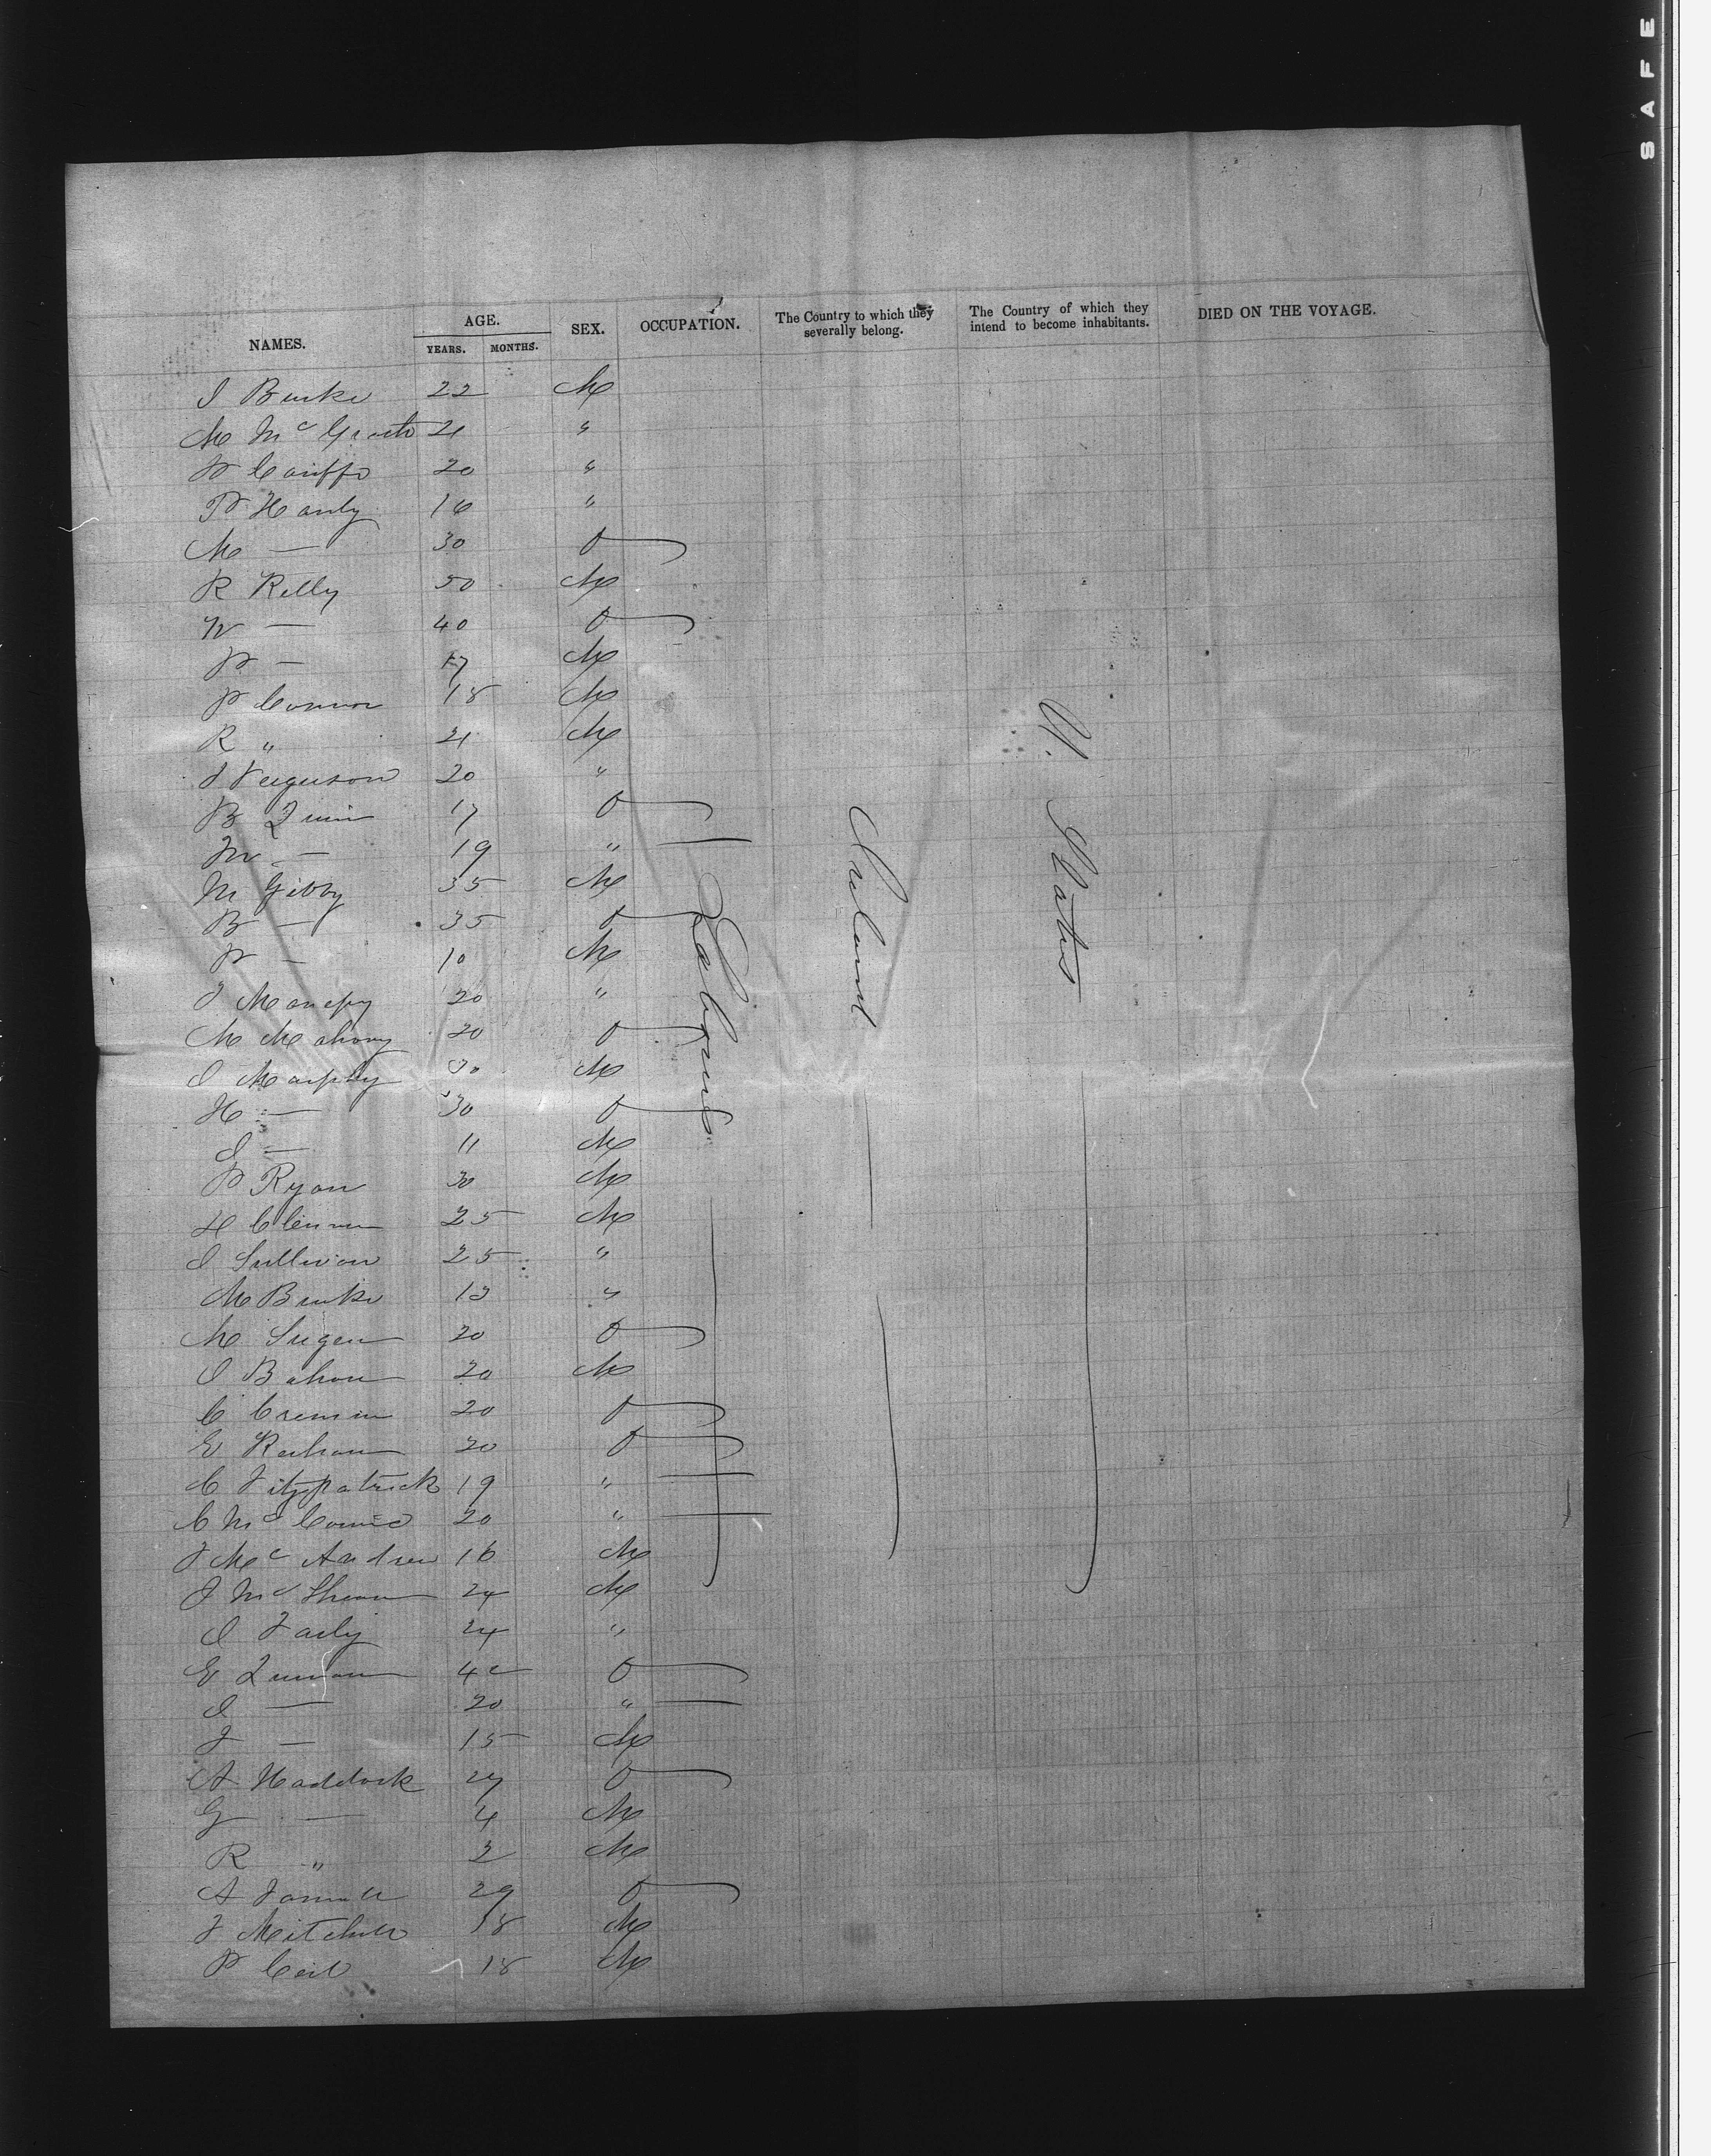 SAFE
NAMES. AGE. YEARS. MONTHS. SEX. OCCUPATION. The Country to which they severally belong. The Country of which they intend to become inhabitants. DIED ON THE VOYAGE.
J Burke 22 M
M McGrath 21 "
20 "
P Hanly 16 "
M — 30
R Kelly 50 M
— 40
P — 17 M
P Connor 18 M
R " 21 M
J Ferguson 20 "
B Quin 17
M — 19 "
M Gibby 35 M
B — 35
P — 10 M
J 20 "
M Mahony 20
J Murphy 30 M
H — 30
J — 11 M
P Ryan 30 M
25 M
J Sullivan 25 "
M Burke 13 "
M 20
J 20 M
C Cremin 20
E 20
C Fitzpatrick 19 "
C Mc 20 "
J Mc Andrew 16 M
J Mc 24 M
J 24 "
E 40
J — 20 "
J — 15 M
A Haddock 27
G — 4 M
R " 2 M
A 29
J Mitchell 18 M
P 18 M
Laborers
Ireland
U. States